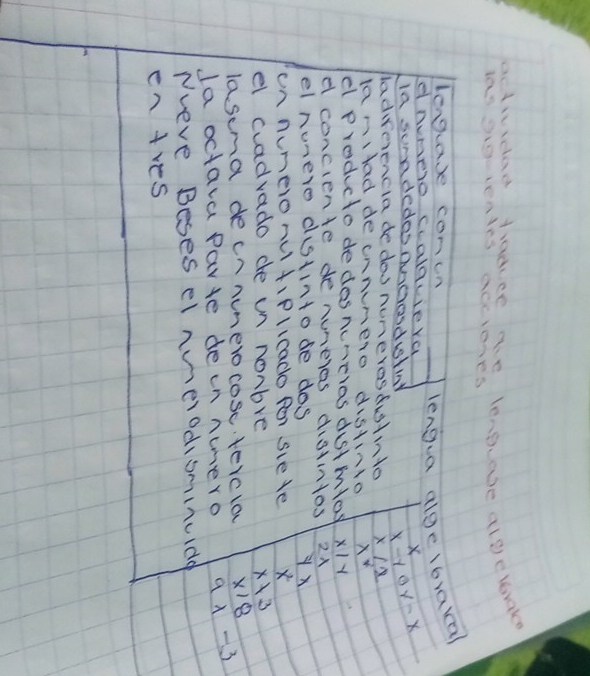 actividad traduce me lenguase algebraico
las siguientes acciones
lenguaxe comun lengua algebraxal
el numero cualquiera x
la suma de dos numeros distin x-y o y-x
la diferencia de dos numeros distinto x/2
la mitad de un numero distinto x
el producto de dos numeros distintos x/y
el conciente de numeros distintos 2x
el numero distinto de dos 7x
un numero multiplicado por siete x²
el cuadrado de un nombre x+3
la suma de un numero cose tercia x/8
la octava parte de un numero 9x-3
Nueve Beses el numero disminuido
en tres